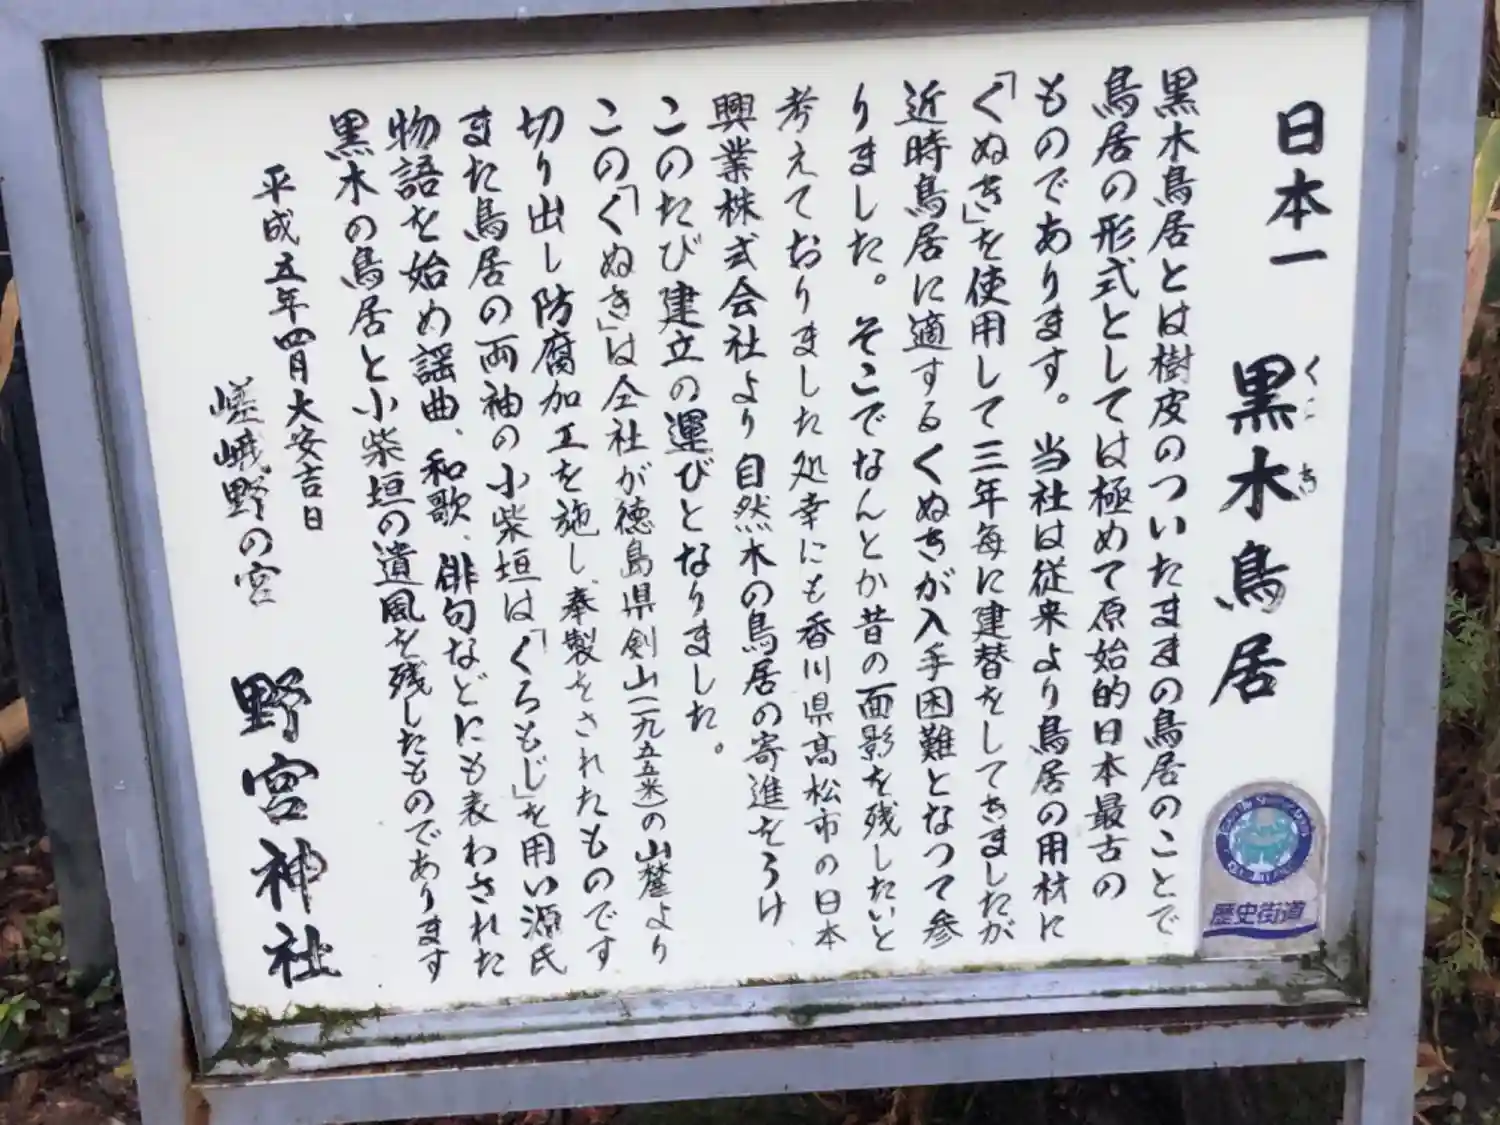 日本一 黒木鳥居
くろき
黒木鳥居とは樹皮のついたままの鳥居のことで
鳥居の形式としては極めて原始的日本最古の
ものであります。当社は従来より鳥居の用材に
「くぬぎ」を使用して三年毎に建替をしてきましたが
近時鳥居に適するくぬぎが入手困難となつて参
りました。そこでなんとか昔の面影を残したいと
考えておりました処幸にも香川県高松市の日本
興業株式会社より自然木の鳥居の寄進をうけ
このたび建立の運びとなりました。
この「くぬぎ」は仝社が徳島県剣山(一九五五米)の山麓より
切り出し防腐加工を施し、奉製をされたものです
また鳥居の両袖の小柴垣は「くろもじ」を用い源氏
物語を始め謡曲、和歌、俳句などにも表わされた
黒木の鳥居と小柴垣の遺風を残したものであります
平成五年四月大安吉日
嵯峨野の宮 野宮神社
歴史街道